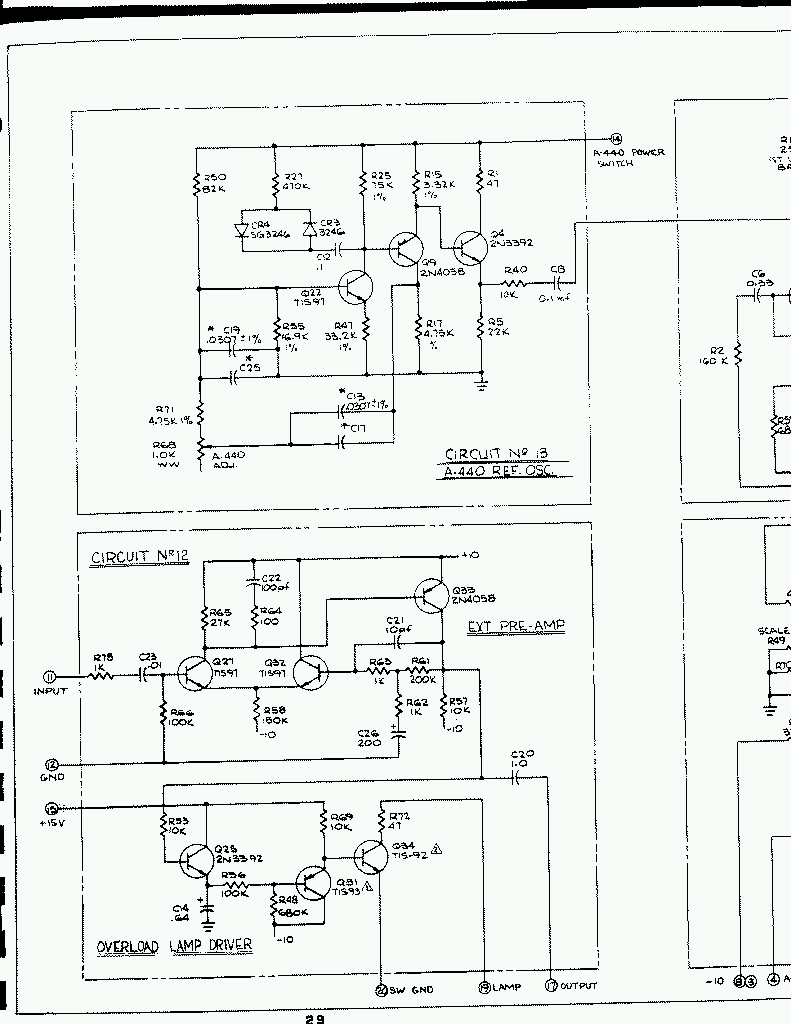 14
A-440 POWER
SWITCH
R50
82K
R27
470K
R25
75K
1%
R15
3.32K
1%
R1
47
CR4
SG3246
CR3
3246
C12
.1
Q9
2N4058
Q4
2N3392
R40
10K
C8
0.1 mf
Q22
TIS97
* C19
.0307±1%
R35
16.9K
1%
R47
33.2K
1%
R17
4.75K
%
R5
22K
*
C25
R71
4.75K 1%
*C13
.0307±1%
*C17
R68
1.0K
WW
A-440
ADJ.
CIRCUIT Nº 13
A-440 REF. OSC.
C6
0.33
R2
160 K
CIRCUIT Nº12
+10
C22
100pf
Q33
2N4058
R65
27K
R64
100
C21
10pf
EXT PRE-AMP
R78
1K
C23
.01
Q27
TIS97
Q32
TIS97
R63
1K
R61
200K
11
INPUT
R66
100K
R58
150K
-10
R62
1K
R57
10K
-10
C26
200
+
12
GND
C20
1.0
15
+15V
R53
10K
R69
10K
R72
47
Q23
2N3392
Q34
TIS-92 2
R36
100K
Q31
TIS93 1
C14
.64
+
R48
680K
-10
OVERLOAD LAMP DRIVER
20 SW GND
19 LAMP
17 OUTPUT
SCALE
R49
-10 8 3
4 A
29